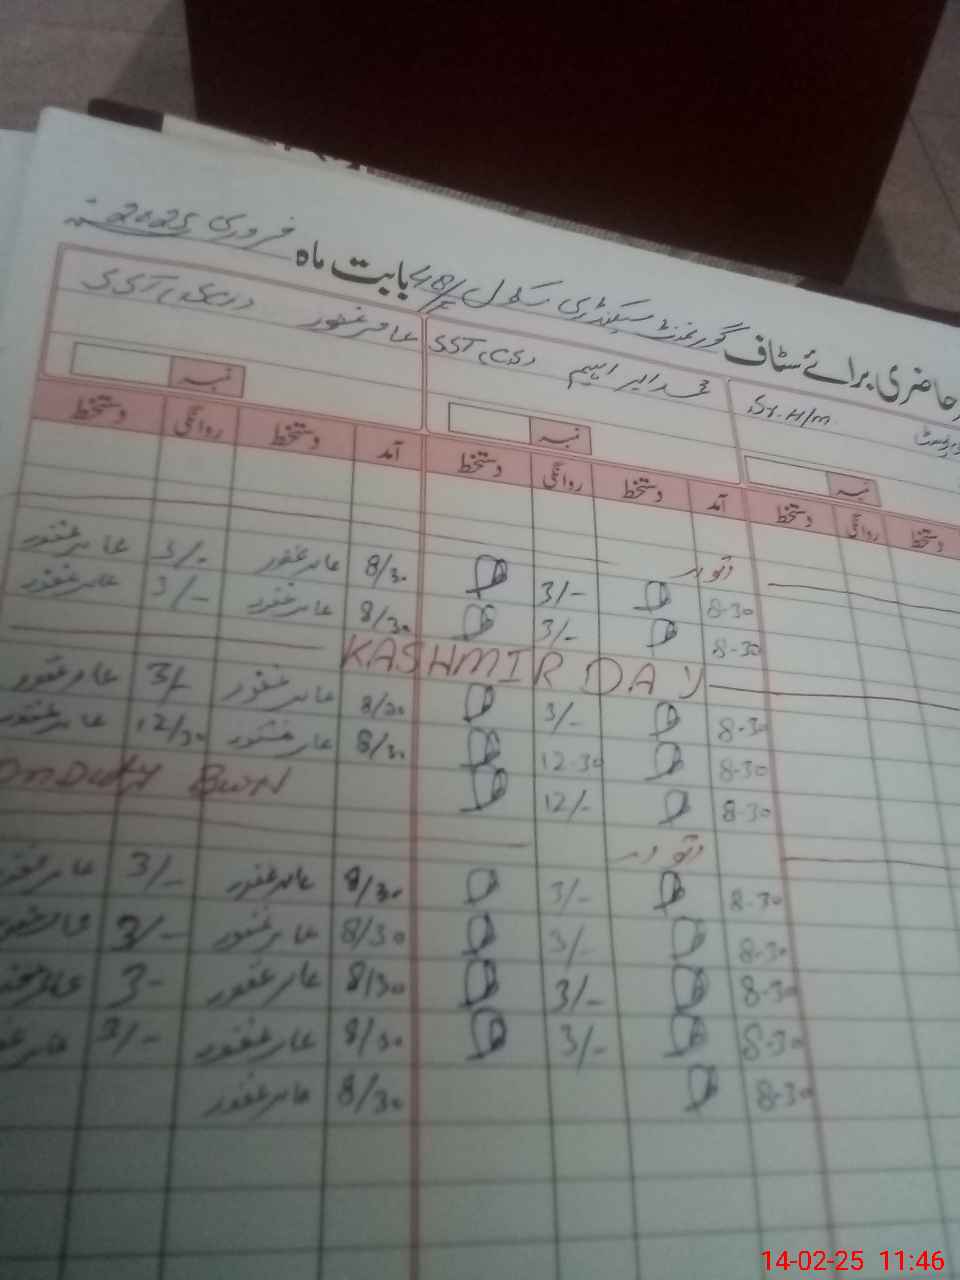 حاضری برائے سٹاف گورنمنٹ سیکنڈری سکول 48/ بابت ماہ فروری 2025
Sr. H/M
محمد ابراہیم SST (CS)
عامر غفور SST
نمبر نمبر نمبر
دستخط روانگی دستخط آمد دستخط روانگی دستخط آمد دستخط روانگی دستخط
اتوار
8-30 3/- 8/30 عامر غفور 3/- عامر غفور
8-30 3/- 8/30 عامر غفور 3/- عامر غفور
KASHMIR DAY
8-30 3/- 8/30 عامر غفور 3/- عامر غفور
8-30 12-30 8/30 عامر غفور 12/30 عامر غفور
8-30 12/- On Duty BWN
اتوار
8-30 3/- 8/30 عامر غفور 3/- عامر غفور
8-30 3/- 8/30 عامر غفور 3/- عامر غفور
8-30 3/- 8/30 عامر غفور 3- عامر غفور
8-30 3/- 8/30 عامر غفور 3/- عامر غفور
8-30 8/30 عامر غفور
14-02-25 11:46